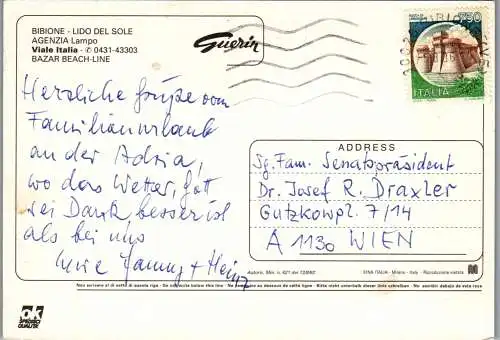 BIBIONE - LIDO DEL SOLE
AGENZIA Lampo
Viale Italia - ✆ 0431-43303
BAZAR BEACH-LINE
Guerin
750
ITALIA
Herzliche Grüße vom
Familienurlaub
an der Adria,
wo das Wetter, Gott
sei Dank besser ist
als bei uns
Eure Hanny + Heinz
ADDRESS
Sg. Fam. Senatspräsident
Dr. Josef R. Draxler
Gutzkowpl. 7/14
A 1130 WIEN
Autoriz. Min. n. 621 del
DINA ITALIA - Milano - Italy - Riproduzione vietata
Non scrivere al di sotto di questa riga - Do not write below this line - Ne pas écrire au-dessous de cette ligne - Bitte nicht unterhalb dieser Linie schreiben - No escribir debajo de esta raya
ok
SPECIMEN
QUALITÉ